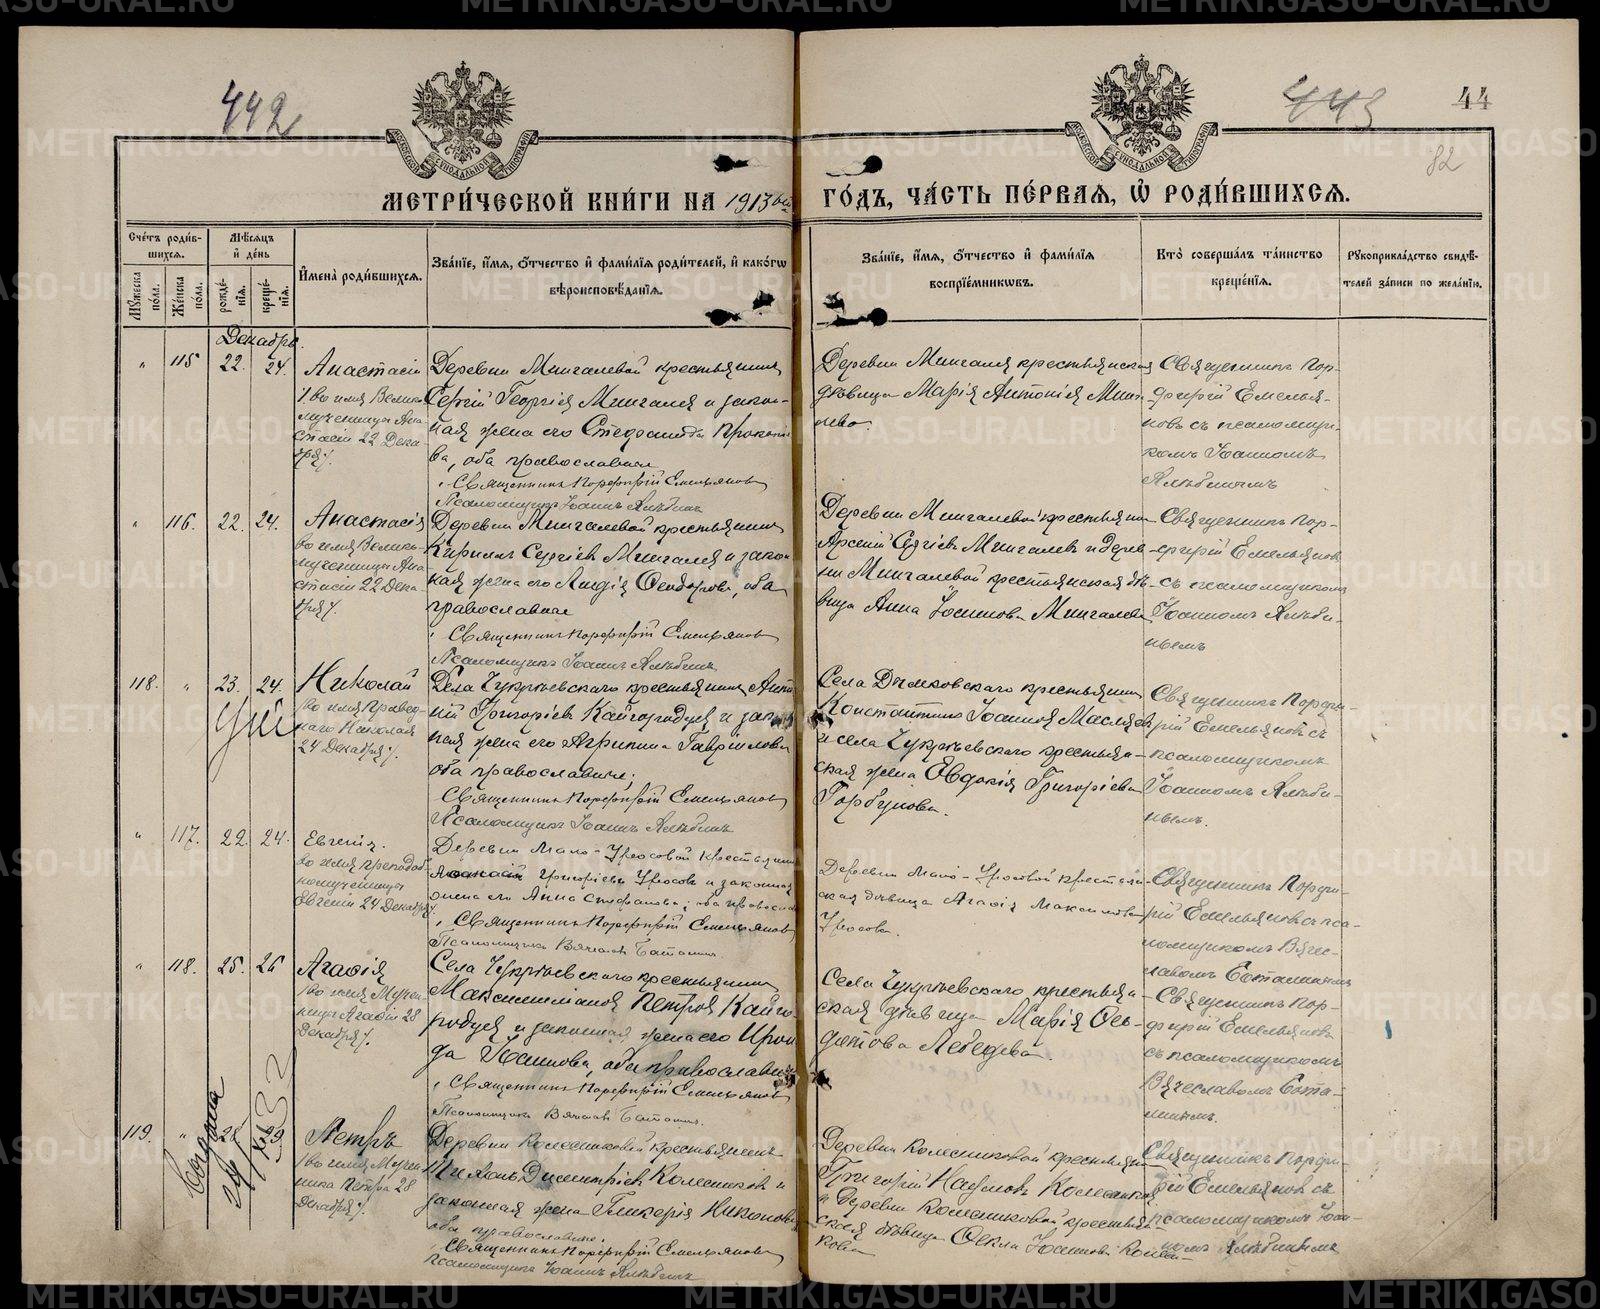 442
443
44
82
МОСКОВСКОЙ СѴНОДАЛЬНОЙ ТИПОГРАФІИ
МОСКОВСКОЙ СѴНОДАЛЬНОЙ ТИПОГРАФІИ
МЕТРИ́ЧЕСКОЙ КНИ́ГИ НА 1913 ый
ГО́ДЪ, ЧА́СТЬ ПЕ́РВАѦ, Ѡ҆ РОДИ́ВШИХСѦ.
Сче́тъ роди́вшихсѧ.
Мꙋ́жеска по́ла.
Же́нска по́ла.
Мѣ́сѧцъ и҆ де́нь
рожде́нїѧ.
креще́нїѧ.
И҆мена̀ роди́вшихсѧ.
Зва́нїе, и҆́мѧ, ѻ҆́тчество и҆ фами́лїѧ роди́телей, и҆ како́гѡ
вѣроисповѣ́данїѧ.
Зва́нїе, и҆́мѧ, ѻ҆́тчество и҆ фами́лїѧ
воспрїе́мникѡвъ.
Кто̀ соверша́лъ та́инство
креще́нїѧ.
Рꙋкоприкла́дство свидѣ́телей за́писи по жела́нїю.
Декабрь.
" 115 22. 24.
Анастасія
/во имя Велико-
мученицы Ана-
стасіи 22 Дека-
бря/.
Деревни Мингалевой крестьянинъ
Сергій Георгіев Мингалев и закон-
ная жена его Стефанида Прокопіе-
ва, оба православные
Священникъ Порфирій Емельяновъ
Псаломщикъ Іоаннъ
Деревни Мингалев крестьянская
дѣвица Марія Антоніев Минга-
лева
Священникъ Пор-
фирій Емелья-
новъ съ псаломщи-
комъ Іоанномъ
" 116. 22. 24.
Анастасія
во имя Велико-
мученицы Ана-
стасіи 22 Дека-
бря/.
Деревни Мингалевой крестьянинъ
Кириллъ Сергіев Мингалев и закон-
ная жена его Лидія Ѳеодорова, оба
православные
Священникъ Порфирій Емельяновъ
Псаломщикъ Іоаннъ
Деревни Мингалевой крестьянин
Арсеній Сергіевъ Мингалевъ и дерев-
ни Мингалевой крестьянская дѣ-
вица Анна Іоаннова Мингалева
Священникъ Пор-
фирій Емельянов
съ псаломщикомъ
Іоанномъ
118. " 23. 24.
Николай
/во имя Правед-
наго Николая
24 Декабря/.
Села Чукреевскаго крестьянинъ
Григоріев Кайгородцев и закон-
ная жена его Агрипина Гавріилова
оба православные;
Священникъ Порфирій Емельяновъ
Псаломщикъ Іоаннъ
Села Дымковскаго крестьянинъ
Константинъ Іоаннов
и села Чукреевскаго крестьян-
ская жена Евдокія Григоріева
Горбунова.
Священникъ Порфи-
рій Емельяновъ съ
псаломщикомъ
Іоанномъ
" 117. 22. 24.
Евгенія.
во имя преподоб-
номученицы
Евгеніи 24 Декабря/
Деревни Мало-Уросовой крестьянинъ
Григоріевъ Уросовъ и законная
жена его Анна Стефанова; оба православ
Священникъ Порфирій Емельяновъ
Псаломщикъ Вячеславъ
Деревни Мало-Уросовой крестьян-
ская дѣвица Агафія Максимова
Уросова.
Священникъ Порфи-
рій Емельяновъ съ пса-
ломщикомъ Вячес-
лавомъ
" 118. 25. 26
Агафія
/во имя Мучен-
ицы Агафіи 28
Декабря/.
Села Чукреевскаго крестьянинъ
Максимиліанъ Петров Кайго-
родцев и законная жена его Ираи-
да Іоаннова, оба православные
Священникъ Порфирій Емельяновъ
Псаломщикъ Вячеславъ
Села Чукреевскаго крестьян-
ская дѣвица Марія
Лебедева.
Священникъ Пор-
фирій Емельяновъ
съ псаломщикомъ
Вячеславомъ
119. " 28 29
Петръ
/во имя Мучен-
ика Петра 28
декабря/.
Деревни Колесниковой крестьянинъ
Димитріев Колесников и
законная жена Гликерія Никонова
оба православные.
Священникъ Порфирій Емельяновъ
Псаломщикъ Іоаннъ
Деревни Колесниковой крестьянин
Григорій Наумовъ Колесников
и Деревни Колесниковой крестьян-
ская дѣвица Ѳекла Іоаннова Колесни-
кова
Священникъ Порфи-
рій Емельяновъ съ
псаломщикомъ Іоан-
номъ
METRIKI.GASO-URAL.RU